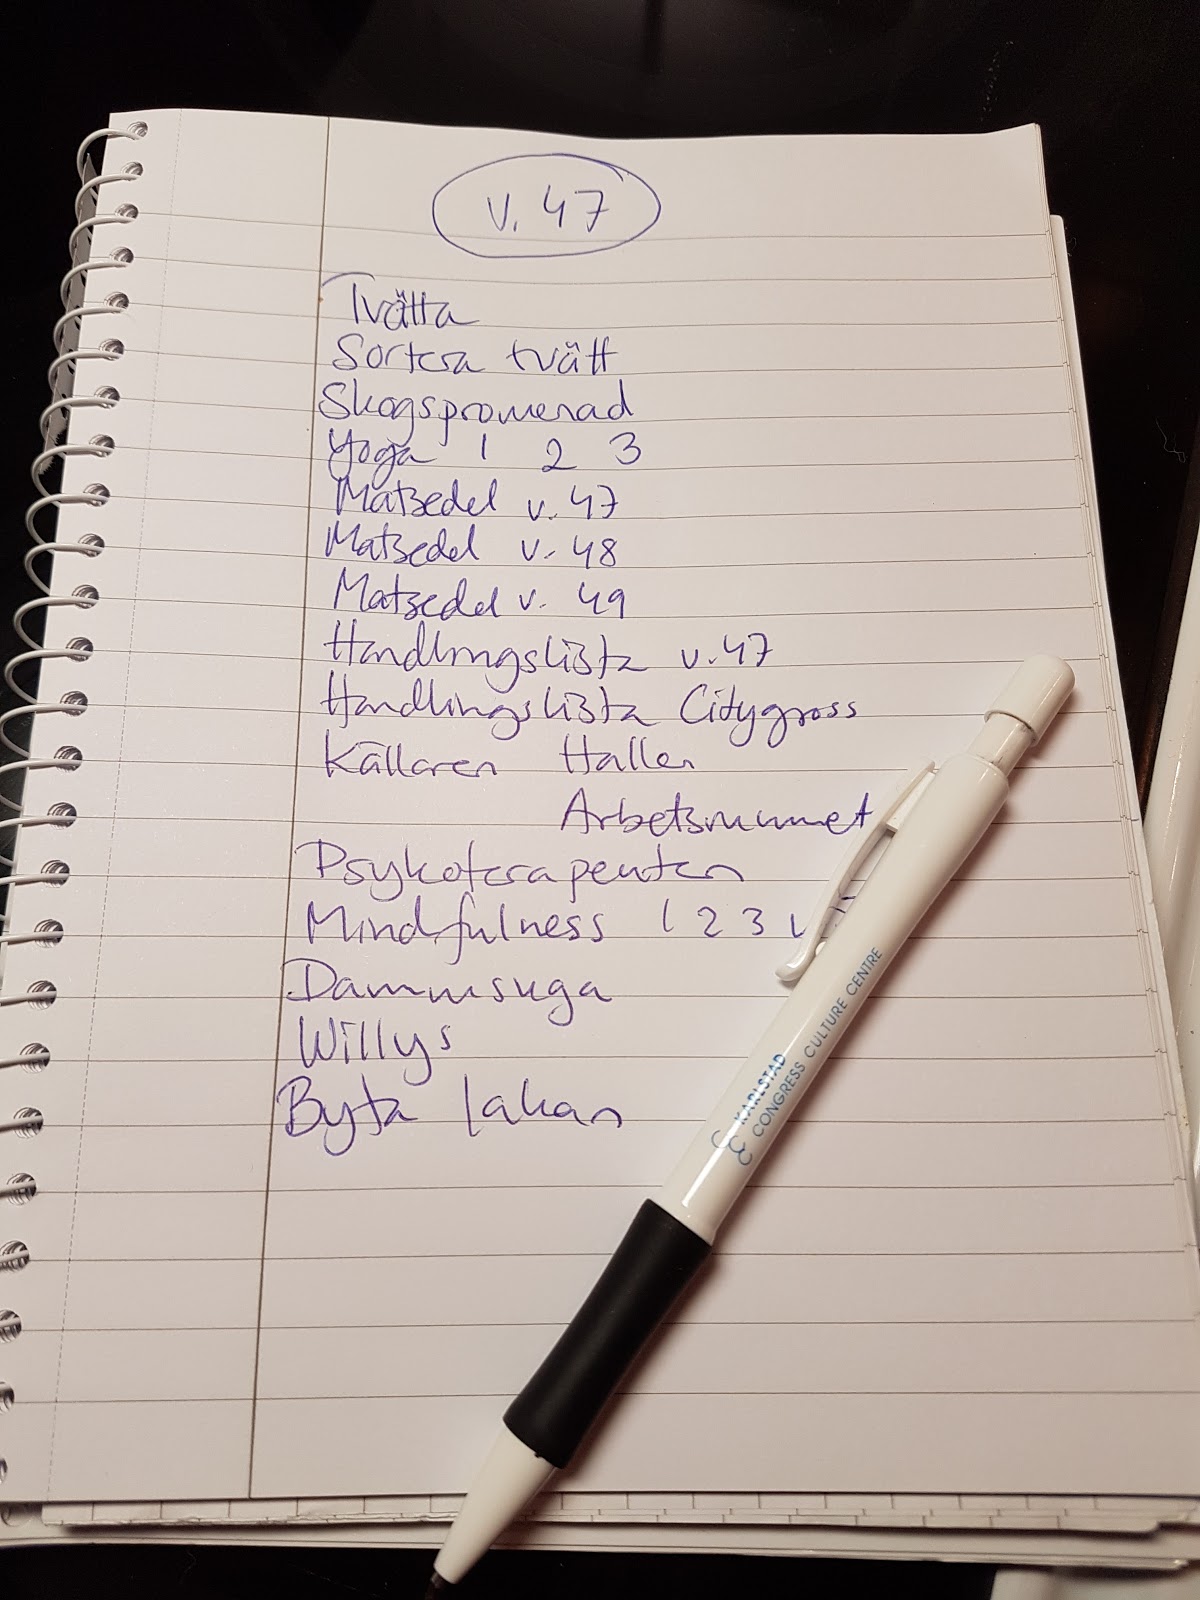 v. 47
Tvätta
Sortera tvätt
Skogspromenad
Yoga 1 2 3
Matsedel v. 47
Matsedel v. 48
Matsedel v. 49
Handlingslista v. 47
Handlingslista Citygross
Källaren Hallen
Arbetsrummet
Psykoterapeuten
Mindfulness 1 2 3
Dammsuga
Willys
Byta lakan
KARLSTAD
CONGRESS CULTURE CENTRE